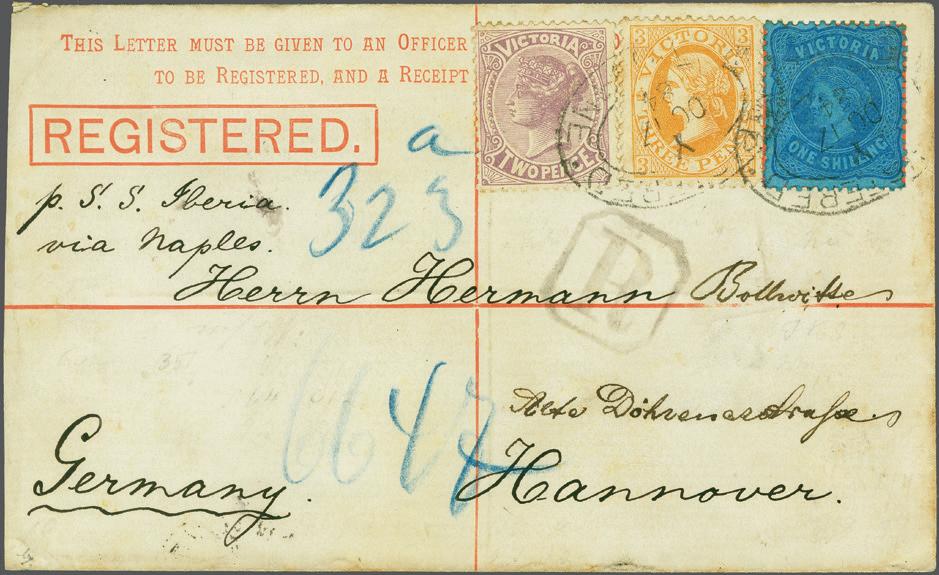 THIS LETTER MUST BE GIVEN TO AN OFFICER
TO BE REGISTERED, AND A RECEIPT
REGISTERED.
VICTORIA
TWO PENCE
3 VICTORIA 3
3 THREE PENCE
VICTORIA
ONE SHILLING
a
323
p. S. S. Iberia.
via Naples.
R
Herrn Hermann Bollwitte
6647
Alte Döhrenerstraße
Germany.
Hannover.